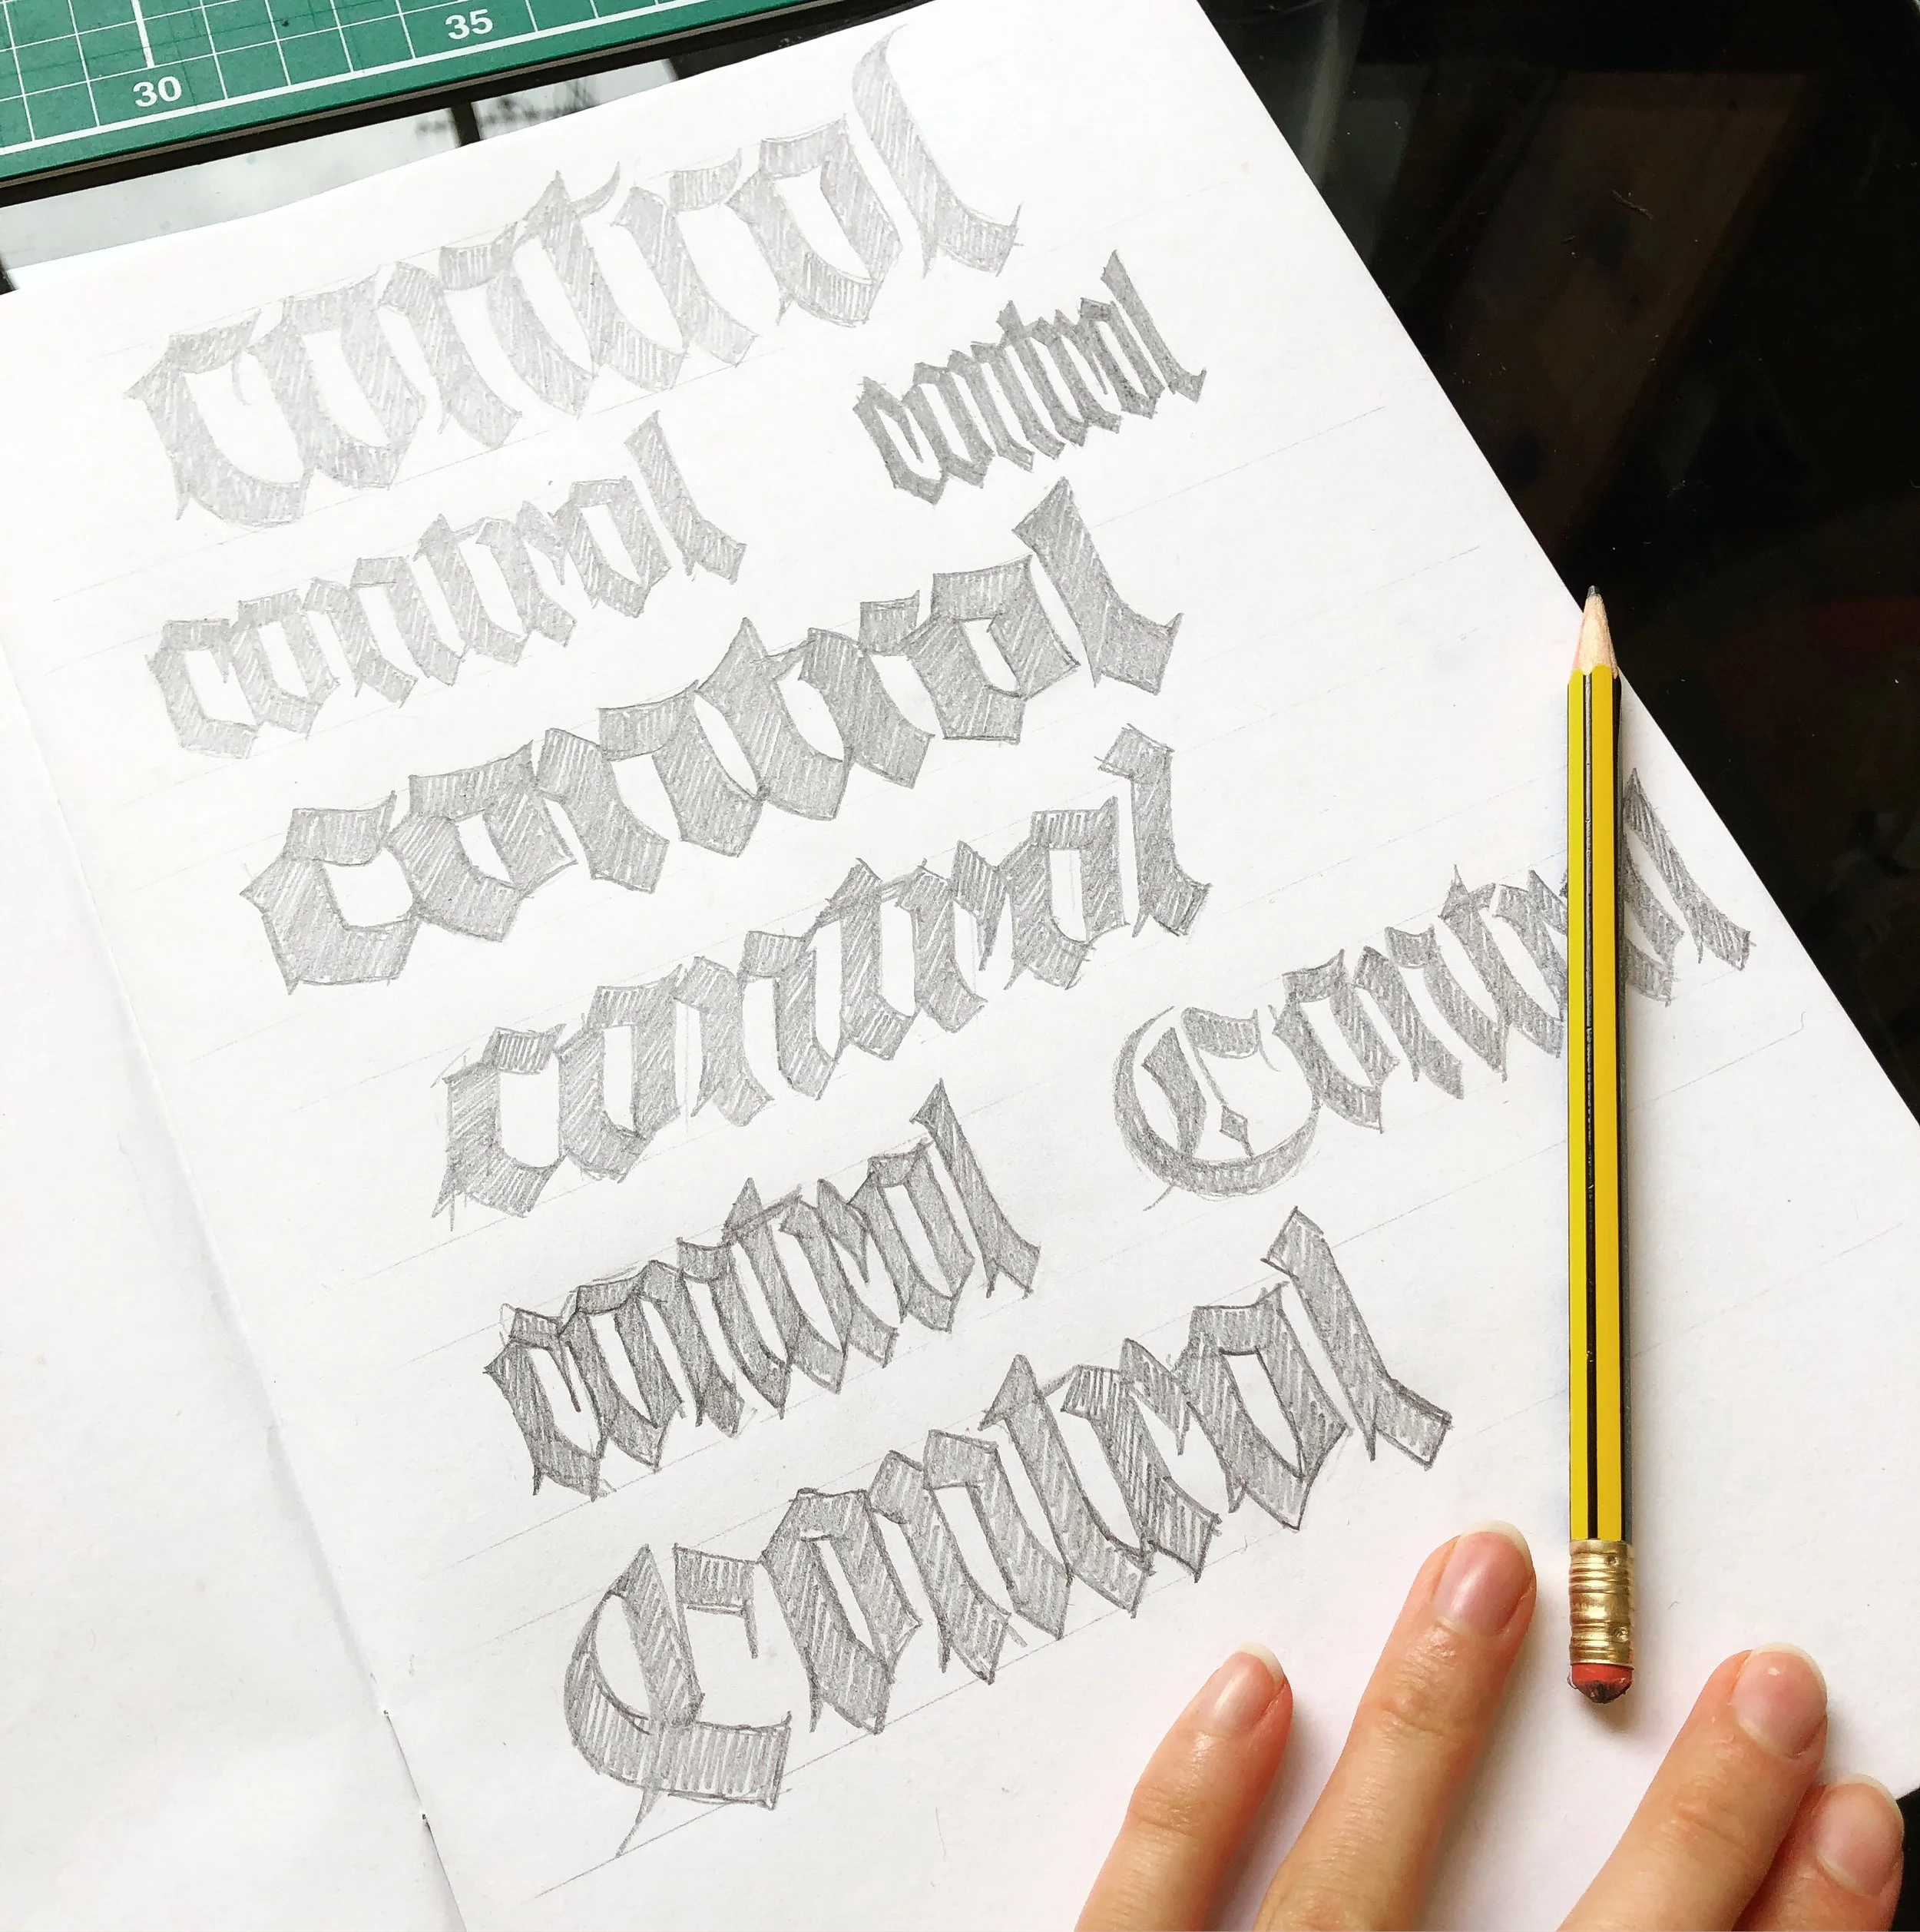 35
30
control
control
control
control
control
Control
control
Control